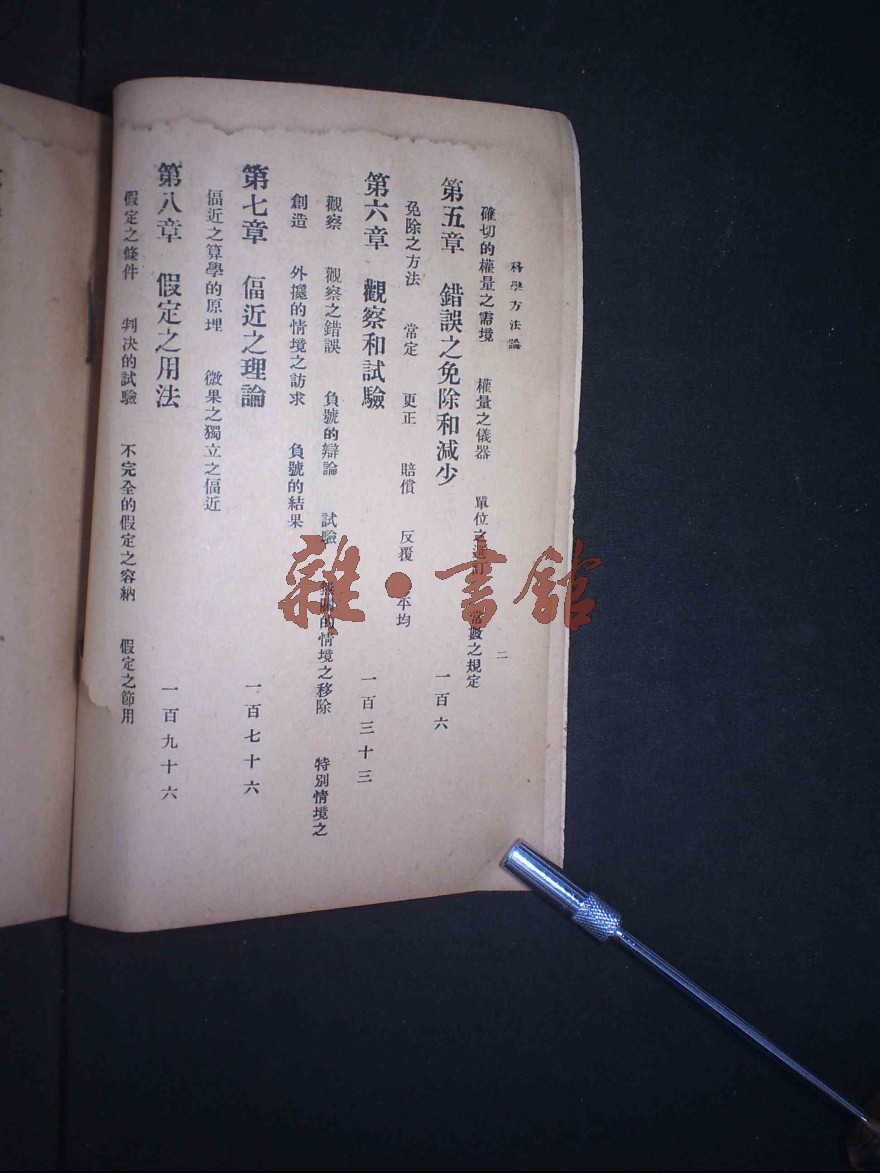 科學方法論
二
確切的權量之需境 權量之儀器 單位之 常數之規定
第五章 錯誤之免除和減少 一百六
免除之方法 常定 更正 賠償 反覆 平均
第六章 觀察和試驗 一百三十三
觀察 觀察之錯誤 負號的辯論 試驗 的情境之移除 特別情境之
創造 外攙的情境之訪求 負號的結果
第七章 偪近之理論 一百七十六
偪近之算學的原理 微果之獨立之偪近
第八章 假定之用法 一百九十六
假定之條件 判决的試驗 不完全的假定之容納 假定之節用
雜·書館